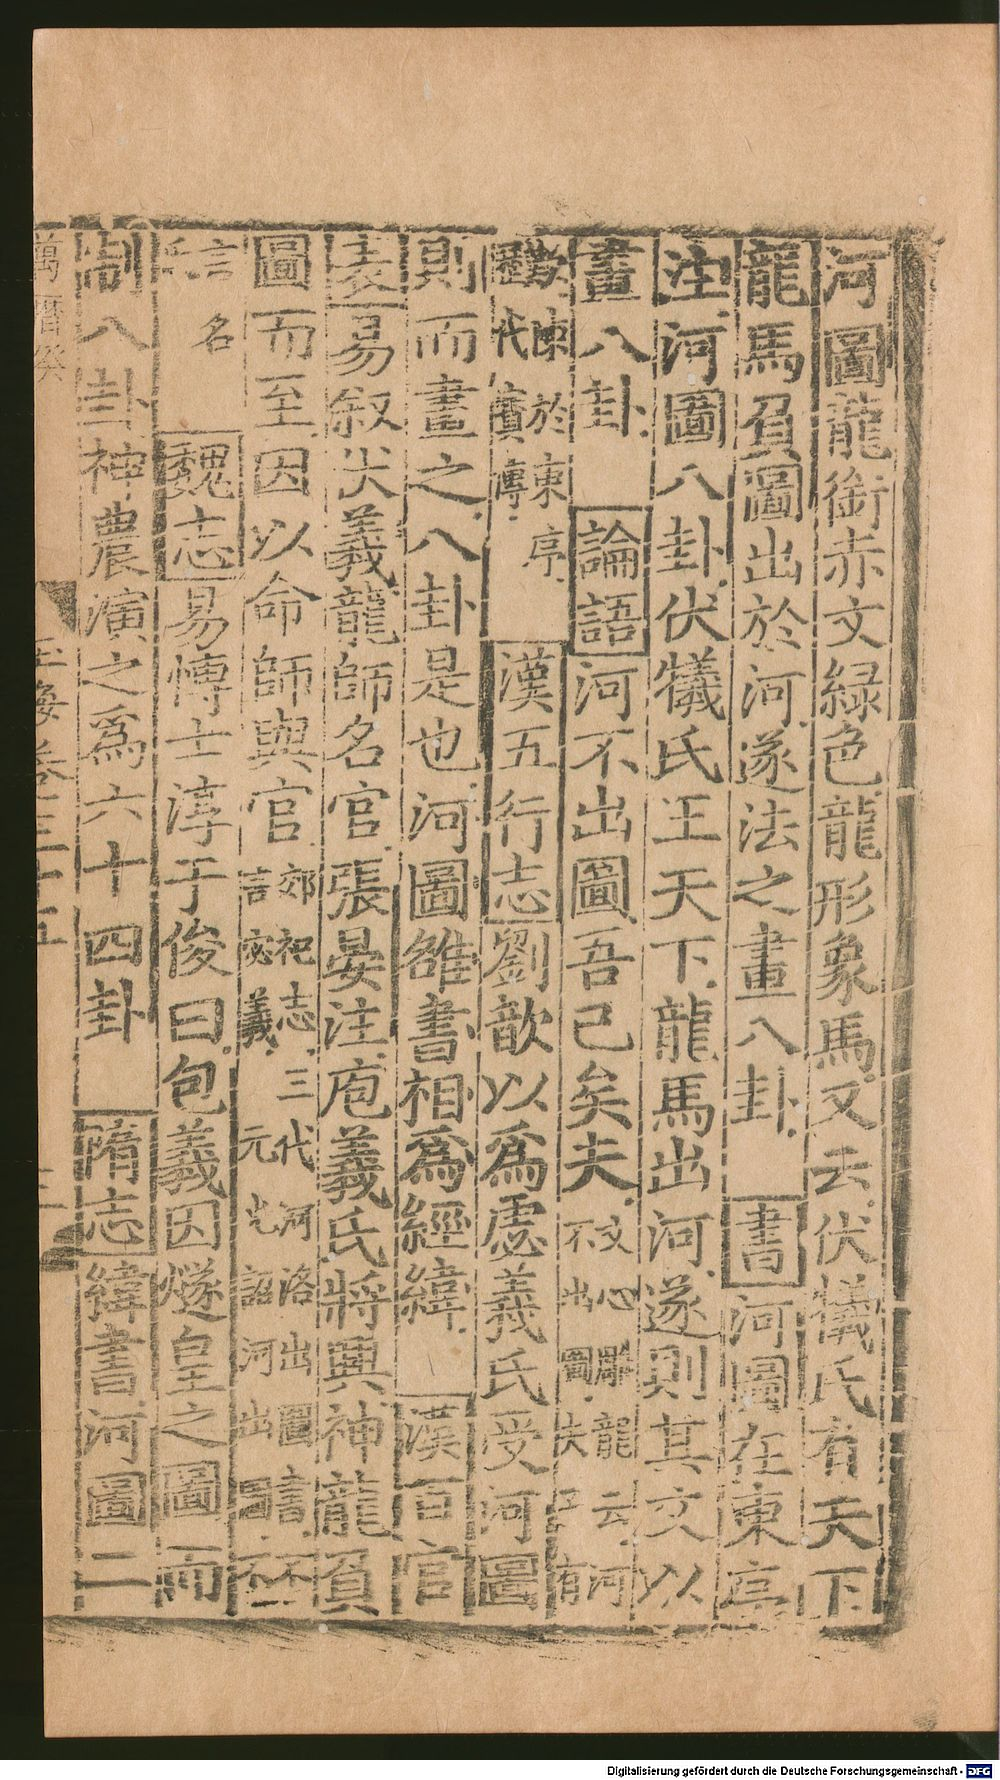 河圖龍銜赤文緑色龍形象馬又云伏犧氏有天下
龍馬負圖出於河遂法之畫八卦 書河圖在東亭
注河圖八卦伏犧氏王天下龍馬出河遂則其文以
畫八卦 論語河不出圖吾已矣夫文心雕龍云河不出圖夫子有
歎陳於東亭歷代寳傳 漢五行志劉歆以爲虙義氏受河圖
則而畫之八卦是也河圖雒書相爲經緯 漢百官
表易叙伏義龍師名官張晏注庖義氏將興神龍負
圖而至因以命師與官郊祀志三代河洛出圖書不言宓義元光詔河出圖不
言名氏 魏志易愽士淳于俊曰包義因燧皇之圖而
制八卦神農演之爲六十四卦 隋志緯書河圖二
萬曆癸
玉海卷三十五
Digitalisierung gefördert durch die Deutsche Forschungsgemeinschaft - DFG